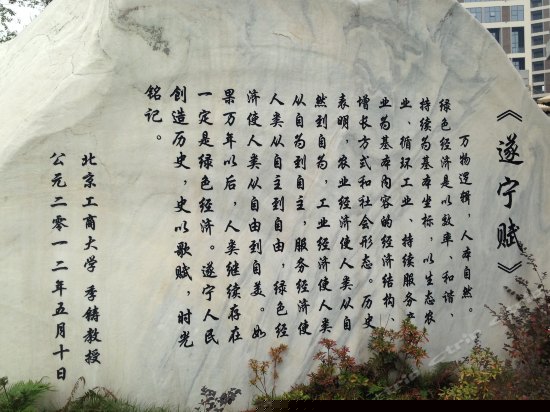 《遂宁赋》
万物逻辑，人本自然。
绿色经济是以效率、和谐、
持续为基本坐标，以生态农
业、循环工业、持续服务产
业为基本内容的经济结构、
增长方式和社会形态。历史
表明，农业经济使人类从自
然到自为，工业经济使人类
从自为到自主，服务经济使
人类从自主到自由，绿色经
济使人类从自由到自美。如
果万年以后，人类继续存在
一定是绿色经济。遂宁人民
创造历史，史以歌赋，时光
铭记。
北京工商大学 季铸教授
公元二零一二年五月十日